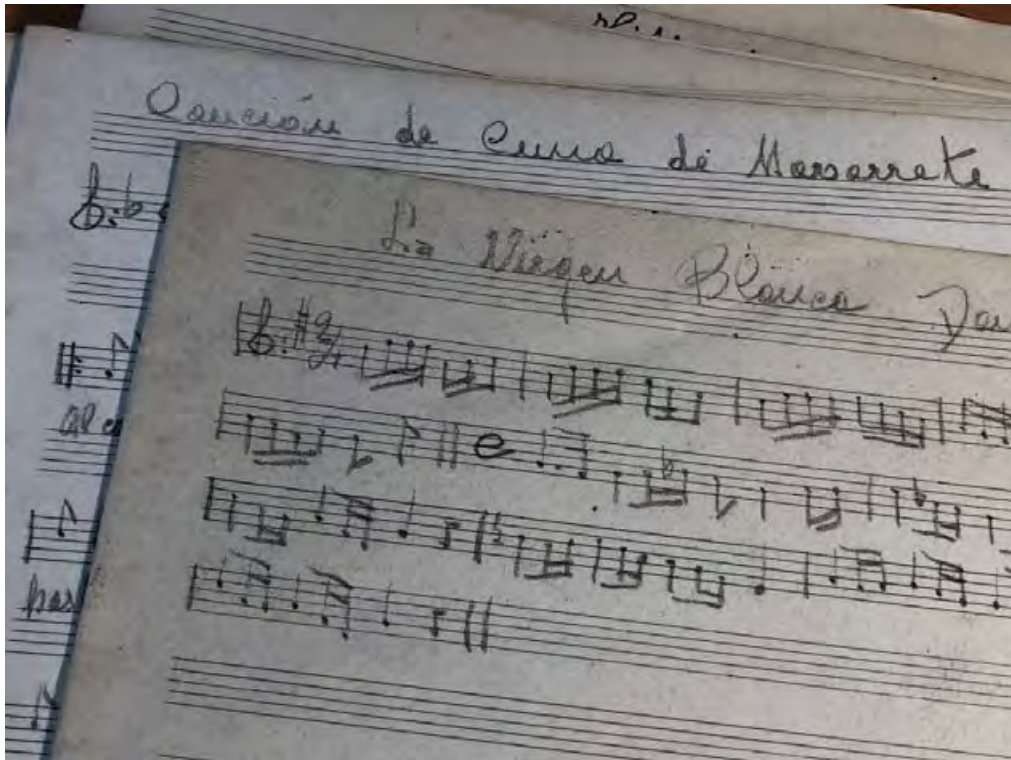 Canción de Cuna de Marsarrete
La Virgen Blanca
al
par